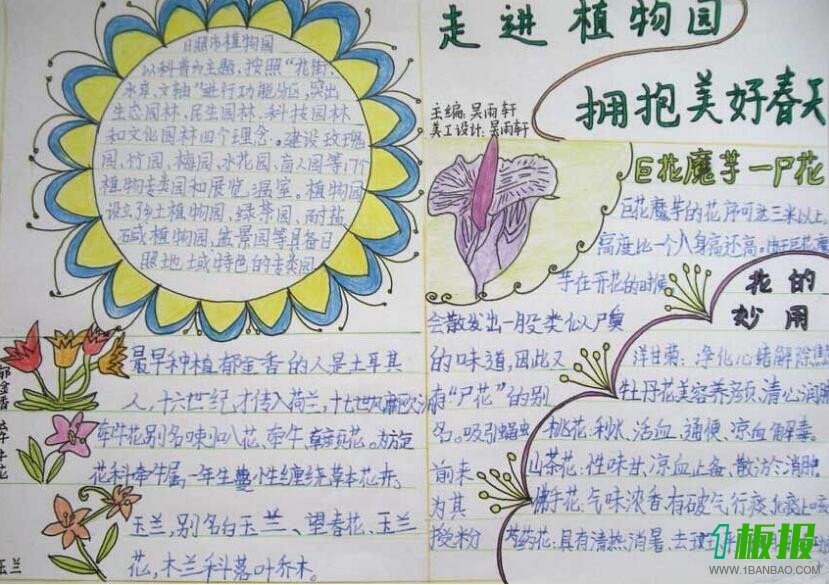 走进植物园
拥抱美好春天
主编:吴雨轩
美工设计:吴雨轩
日照市植物园
以科普为主题,按照“花街、
水草、文轴”进行功能分区,突出
生态园林、民生园林、科技园林
和文化园林四个理念。建设玫瑰
园、竹园、梅园、水花园、盲人园等17个
植物专类园和展览温室。植物园
设立乡土植物园、绿篱园、耐盐
碱植物园、盆景园等具备日
照地域特色的专类园
郁金香
最早种植郁金香的人是土耳其
人,十六世纪,才传入荷兰,十七世纪
牵牛花
牵牛花别名喇叭花、牵牛、
花科牵牛属,一年生蔓性缠绕草本花卉。
玉兰
玉兰,别名白玉兰、望春花、玉兰
花,木兰科落叶乔木。
巨花魔芋一尸花
巨花魔芋的花序可达三米以上,
高度比一个人身高还高。
芋在开花的时候
会散发出一股类似人尸臭
的味道,因此又
有“尸花”的别
名。吸引蝇虫
前来
为其
授粉
花的
妙用
洋甘菊:净化心绪解除焦
牡丹花美容养颜,清心润肺
桃花:利水、活血、通便、凉血解毒
山茶花:性味甘、凉血止备、散淤消肿
佛手花:气味浓香有破气行痰
芍药花:具有清热、消暑、去
1板报
WWW.1BANBAO.COM